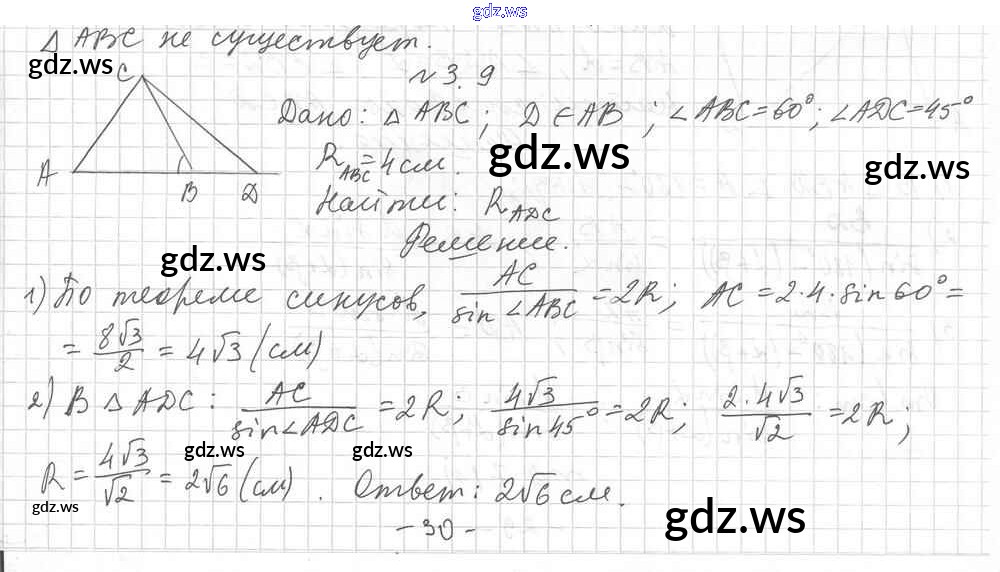 gdz.ws
△ABC не существует.
gdz.ws
№3.9
C
A
B
D
Дано: △ABC; D∈AB; ∠ABC=60°; ∠ADC=45°
R_ABC=4 см.
gdz.ws
gdz.ws
Найти: R_ADC
Решение.
gdz.ws
1) По теореме синусов, AC/sin∠ABC = 2R; AC = 2·4·sin60° =
= 8√3/2 = 4√3 (см)
2) В △ADC: AC/sin∠ADC = 2R; 4√3/sin45° = 2R; 2·4√3/√2 = 2R;
gdz.ws
gdz.ws
R = 4√3/√2 = 2√6 (см). Ответ: 2√6 см.
gdz.ws
gdz.ws
-30-